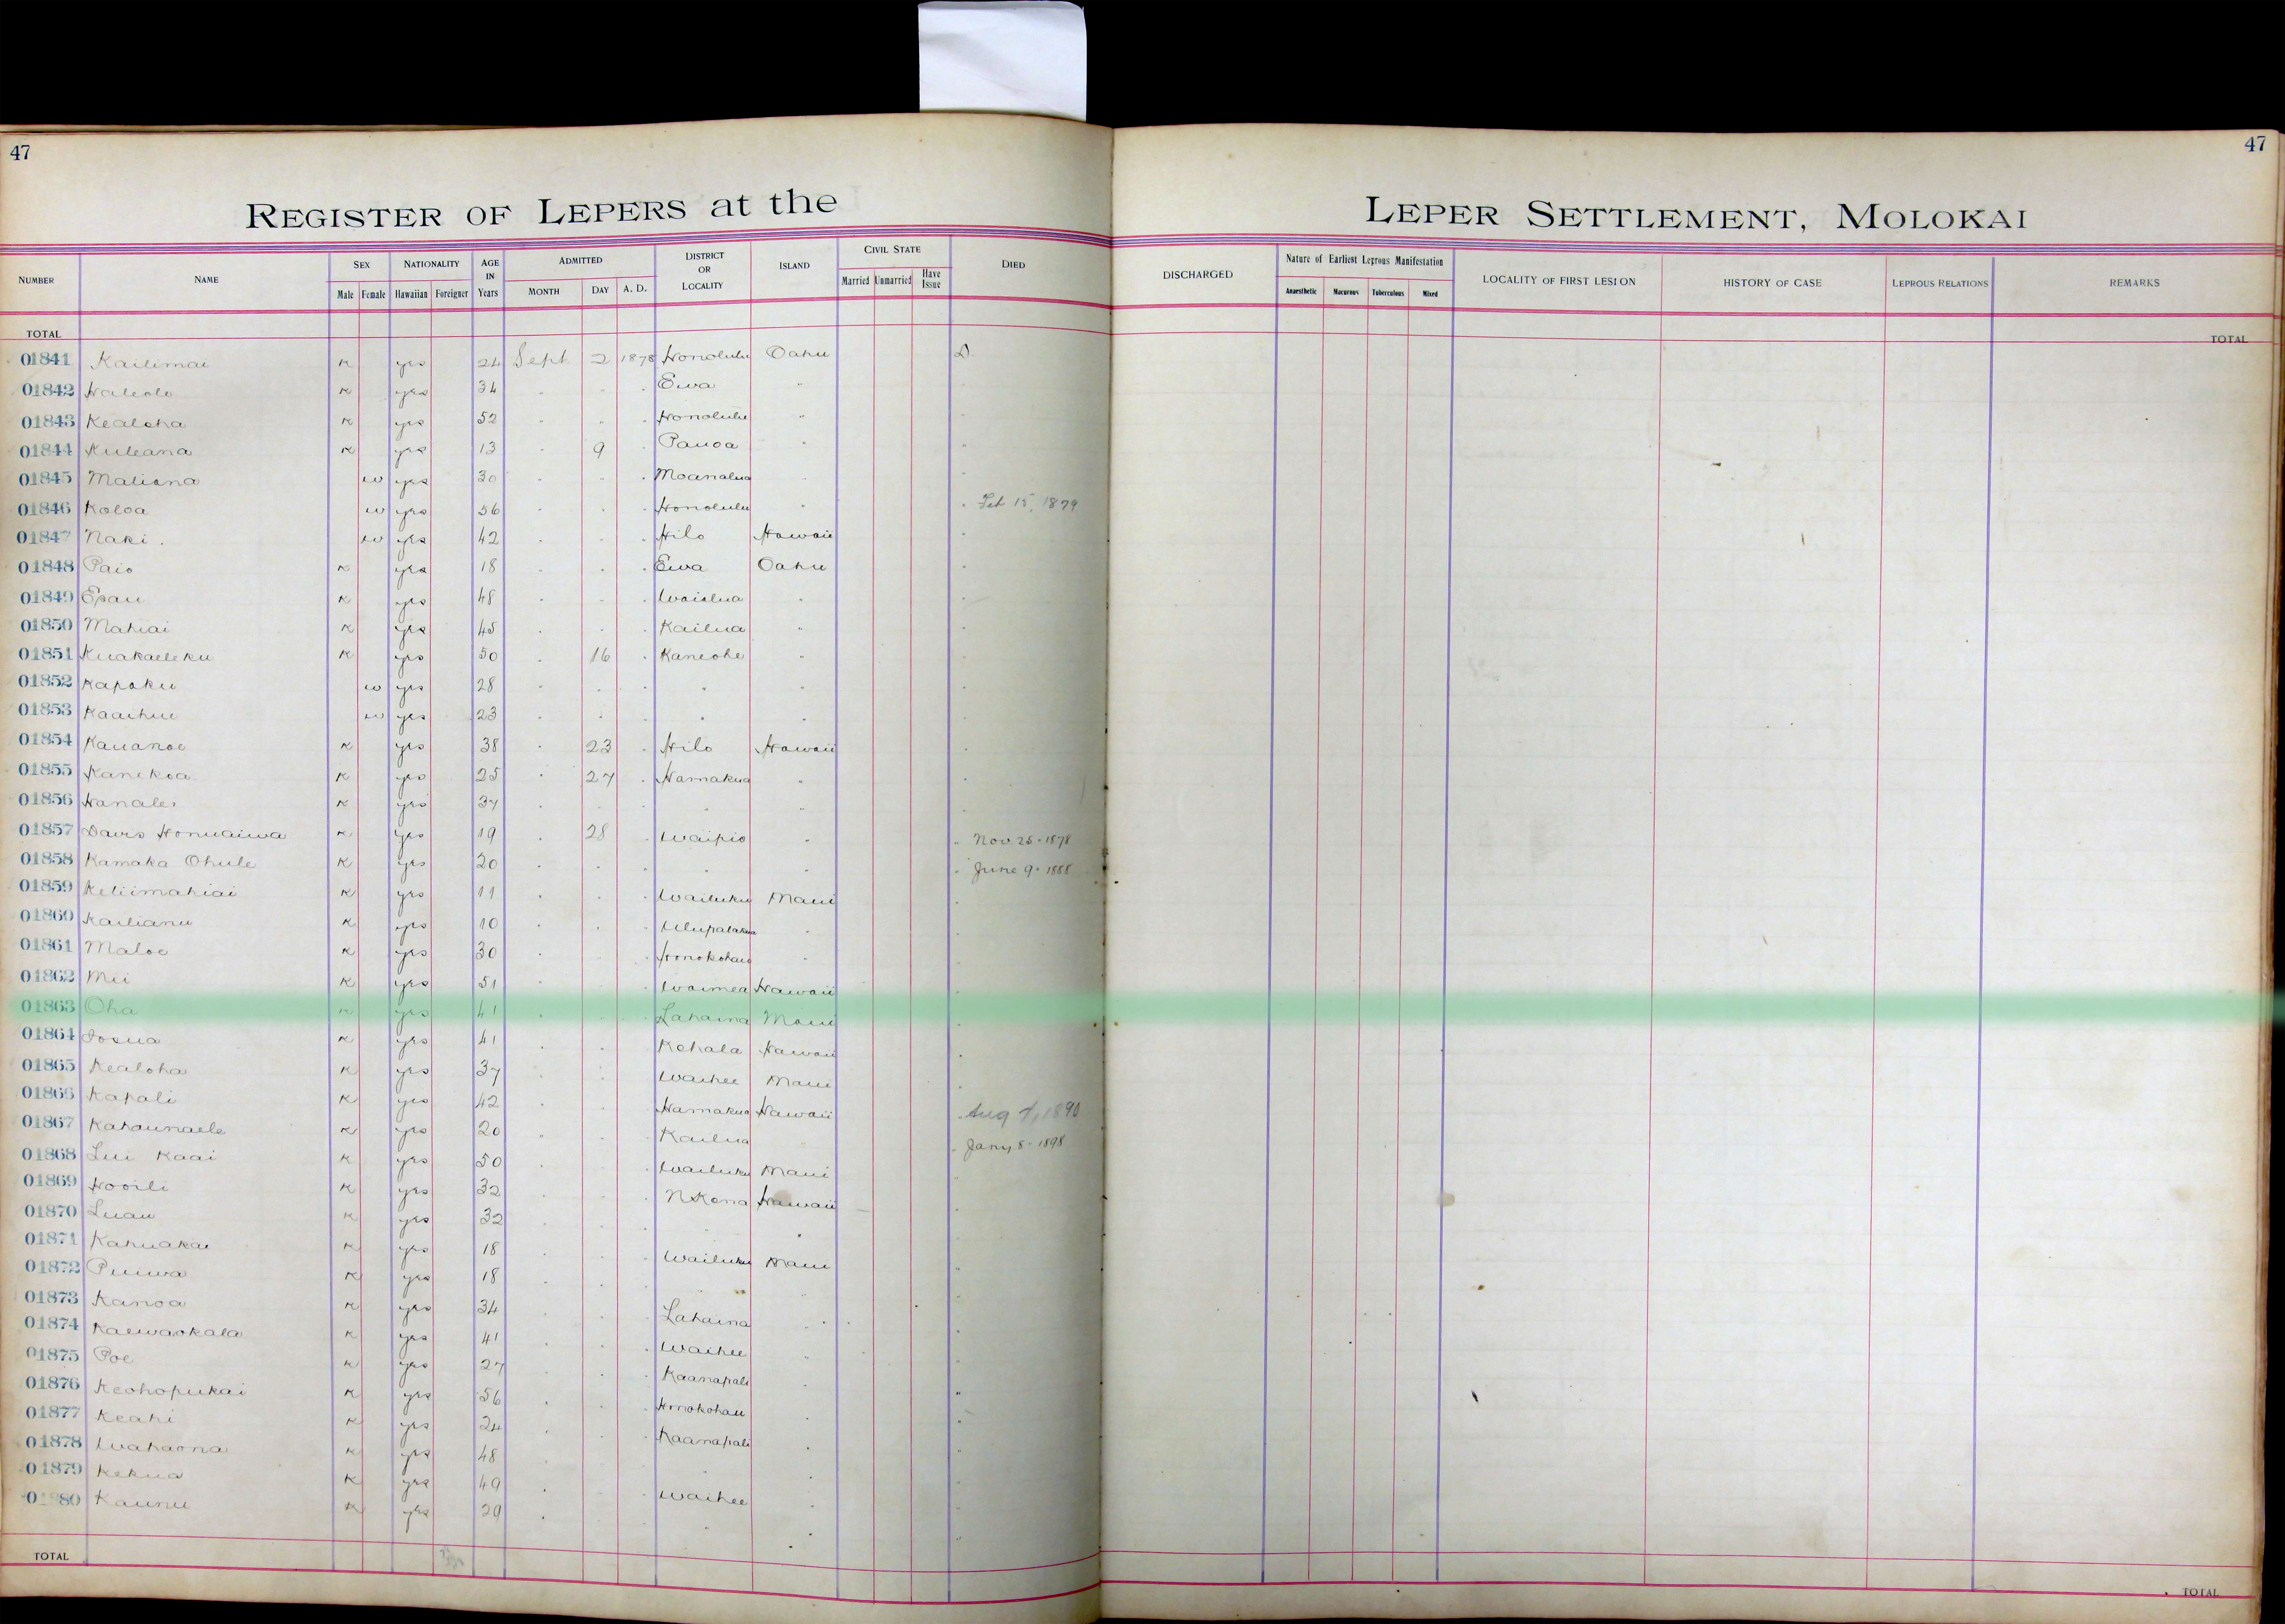 47
47
REGISTER OF LEPERS at the
LEPER SETTLEMENT, MOLOKAI
NUMBER NAME SEX Male Female NATIONALITY Hawaiian Foreigner AGE IN Years ADMITTED MONTH DAY A. D. DISTRICT OR LOCALITY ISLAND CIVIL STATE Married Unmarried Have Issue DIED
DISCHARGED Nature of Earliest Leprous Manifestation Anaesthetic Macurous Tuberculous Mixed LOCALITY OF FIRST LESION HISTORY OF CASE LEPROUS RELATIONS REMARKS
TOTAL TOTAL
01841 Kailimai K yes 24 Sept 2 1878 Honolulu Oahu D
01842 Haleolo K yes 34 " " " Ewa "
01843 Kealoha K yes 52 " " " Honolulu "
01844 Kuleana K yes 13 " 9 " Pauoa " "
01845 Maliana w yes 30 " " " Moanalua " "
01846 Koloa w yes 56 " " " Honolulu " " Feb 15, 1879
01847 Naki w yes 42 " " " Hilo Hawaii "
01848 Paio K yes 18 " " " Ewa Oahu "
01849 Epau K yes 48 " " " Waialua " "
01850 Mahiai K yes 45 " " " Kailua " "
01851 Kuakaeleku K yes 50 " 16 " Kaneohe " "
01852 Kapoku w yes 28 " " " " " "
01853 Kaaihue w yes 23 " " " " " "
01854 Kauanoe K yes 38 " 23 " Hilo Hawaii "
01855 Kanekoa K yes 25 " 27 " Hamakua " "
01856 Hanalei K yes 37 " " " " " "
01857 Davis Honuaiwa K yes 19 " 28 " Waipio " " Nov 25 - 1878
01858 Kamaka Ohule K yes 20 " " " " " " June 9 - 1888
01859 Keliimahiai K yes 11 " " " Wailuku Maui "
01860 Kailianu K yes 10 " " " Ulupalakua " "
01861 Maloe K yes 30 " " " Honokohau " "
01862 Mii K yes 51 " " " Waimea Hawaii "
01863 Oha K yes 41 " " " Lahaina Maui "
01864 Iosua K yes 41 " " " Kohala Hawaii "
01865 Kealoha K yes 37 " " " Waihee Maui "
01866 Kapali K yes 42 " " " Hamakua Hawaii " Aug 7, 1890
01867 Kahaunaele K yes 20 " " " Kailua " " Jany 8 - 1898
01868 Lui Kaai K yes 50 " " " Wailuku Maui "
01869 Hooili K yes 32 " " " N Kona Hawaii "
01870 Luau K yes 32 " " " " "
01871 Kahuakai K yes 18 " " " Wailuku Maui "
01872 Puiwa K yes 18 " " " " " "
01873 Kanoa K yes 34 " " " Lahaina " "
01874 Kaewaokala K yes 41 " " " Waihee " "
01875 Poe K yes 27 " " " Kaanapali " "
01876 Keohopukai K yes 56 " " " Honokohau " "
01877 Keahi K yes 24 " " " Kaanapali " "
01878 Wahaona K yes 48 " " " " " "
01879 Kekua K yes 49 " " " Waihee " "
01880 Kaunu K yes 29 " " " " " "
TOTAL TOTAL